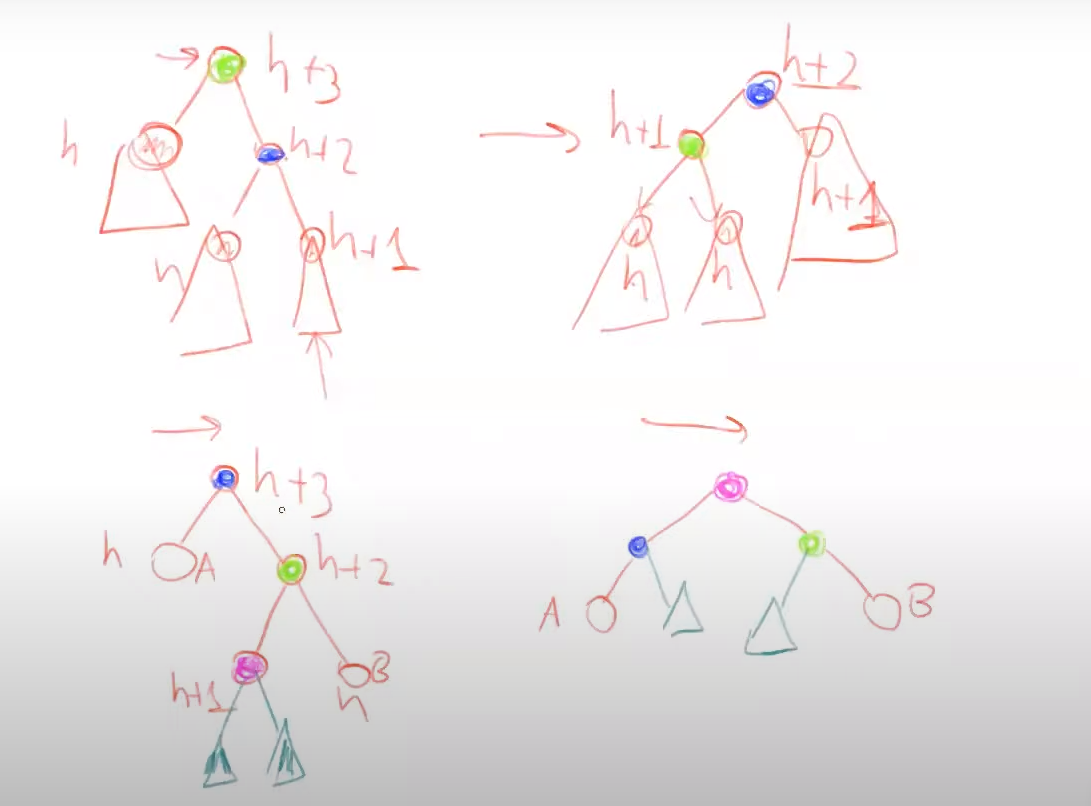 h+3
h
h+2
h
h+1
h+2
h+1
h+1
h
h
h+3
h
A
h+2
h+1
B
h
A
B